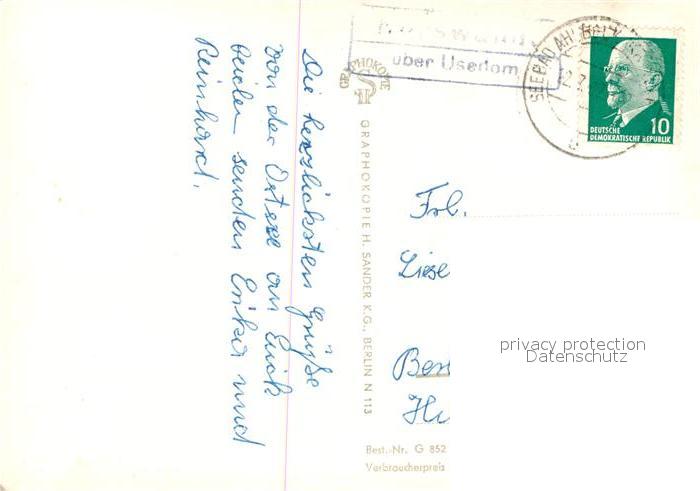 Die herzlichsten Grüße
von der Ostsee an Euch
beiden senden Erika und
Reinhard.
GRAPHOKOPIE
GRAPHOKOPIE H. SANDER K.G., BERLIN N 113
über Usedom
SEEBAD AHLBECK
10
DEUTSCHE
DEMOKRATISCHE REPUBLIK
Frl.
Liese
privacy protection
Datenschutz
Best.-Nr. G 852
Verbraucherpreis